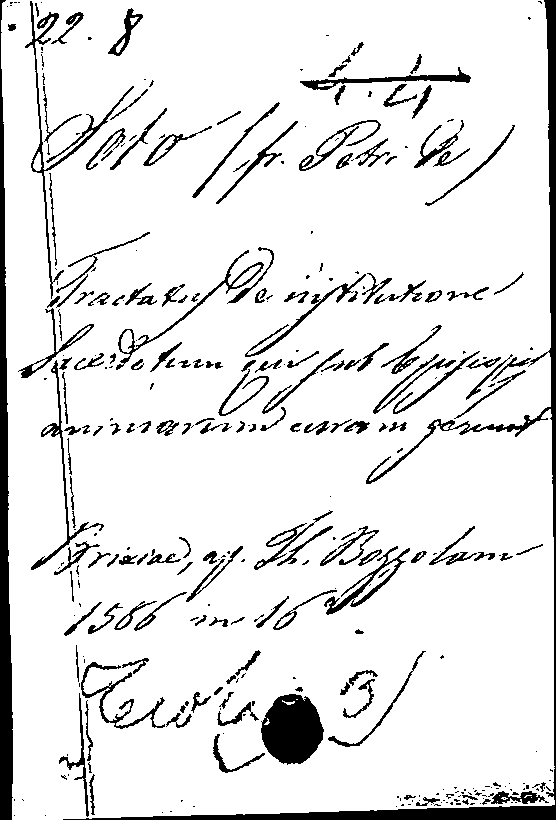 22. 8
4. 4
Soto (fr. Petri de)
Tractatus de institutione
Sacerdotum qui sub Episcopis
animarum curam gerunt
Brixiae, ap. Th. Bozzolam
1586 in 16°
Teol. 3)